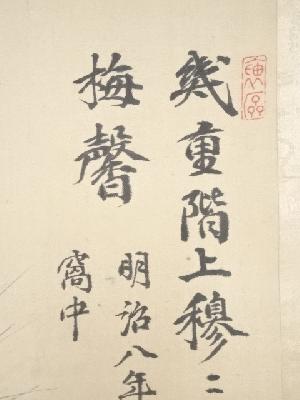 幾重階上穆〻
梅馨
明治八年
窩中